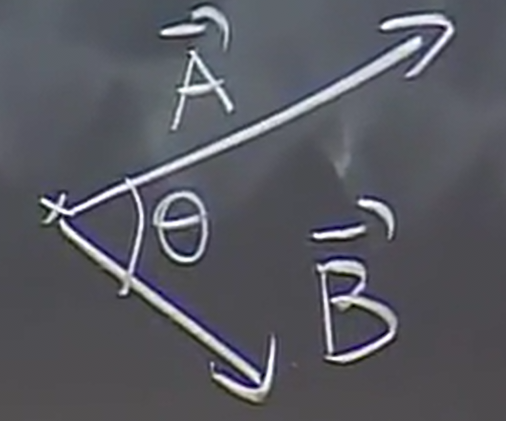 A⃗
θ
B⃗